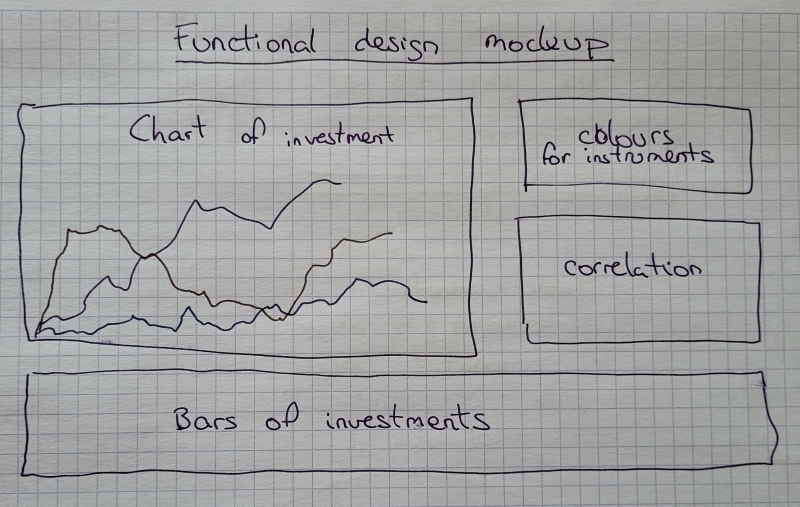 Functional design mockup
Chart of investment
colours
for instruments
correlation
Bars of investments